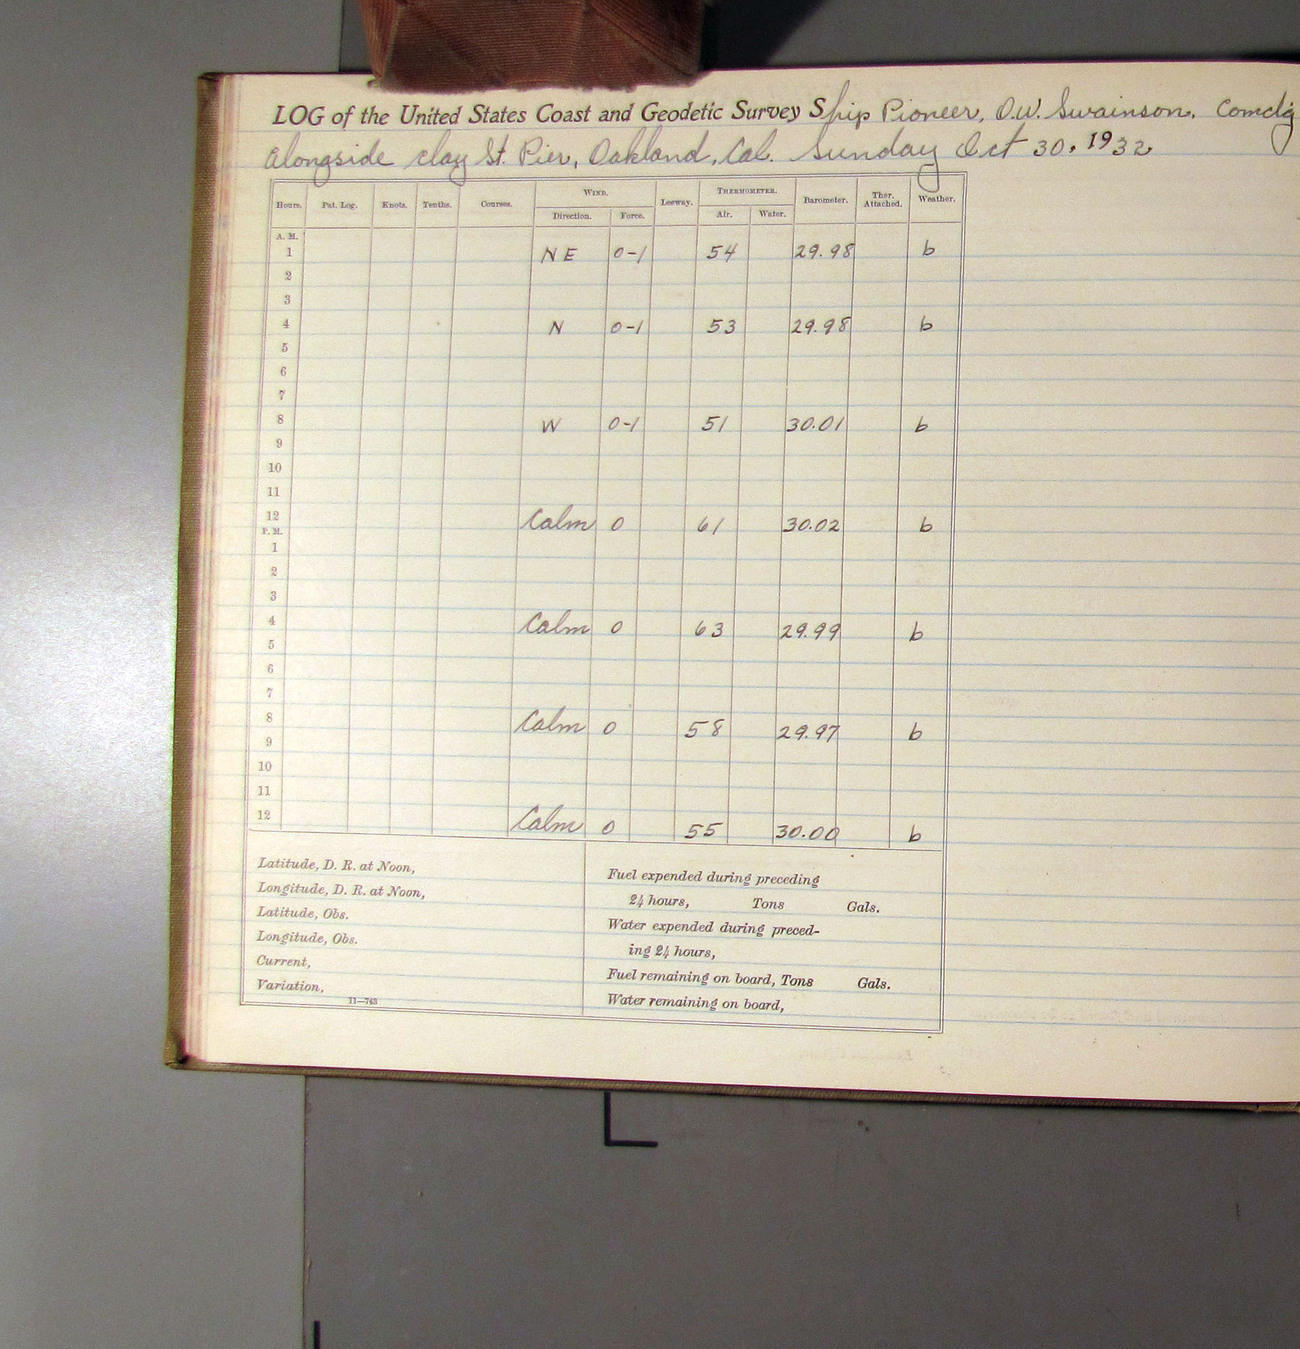 LOG of the United States Coast and Geodetic Survey Ship Pioneer, O.W. Swainson, Comdg
alongside clay St. Pier, Oakland, Cal. Sunday Oct 30, 1932
Hours. Pat. Log. Knots. Tenths. Courses. WIND. Leeway. THERMOMETER. Barometer. Ther. Attached. Weather.
Direction. Force. Air. Water.
A. M.
1 NE 0-1 54 29.98 b
2
3
4 N 0-1 53 29.98 b
5
6
7
8 W 0-1 51 30.01 b
9
10
11
12 Calm 0 61 30.02 b
P. M.
1
2
3
4 Calm 0 63 29.99 b
5
6
7
8 Calm 0 58 29.97 b
9
10
11
12 Calm 0 55 30.00 b
Latitude, D. R. at Noon,
Longitude, D. R. at Noon,
Latitude, Obs.
Longitude, Obs.
Current,
Variation,
11—763
Fuel expended during preceding
24 hours, Tons Gals.
Water expended during preced-
ing 24 hours,
Fuel remaining on board, Tons Gals.
Water remaining on board,